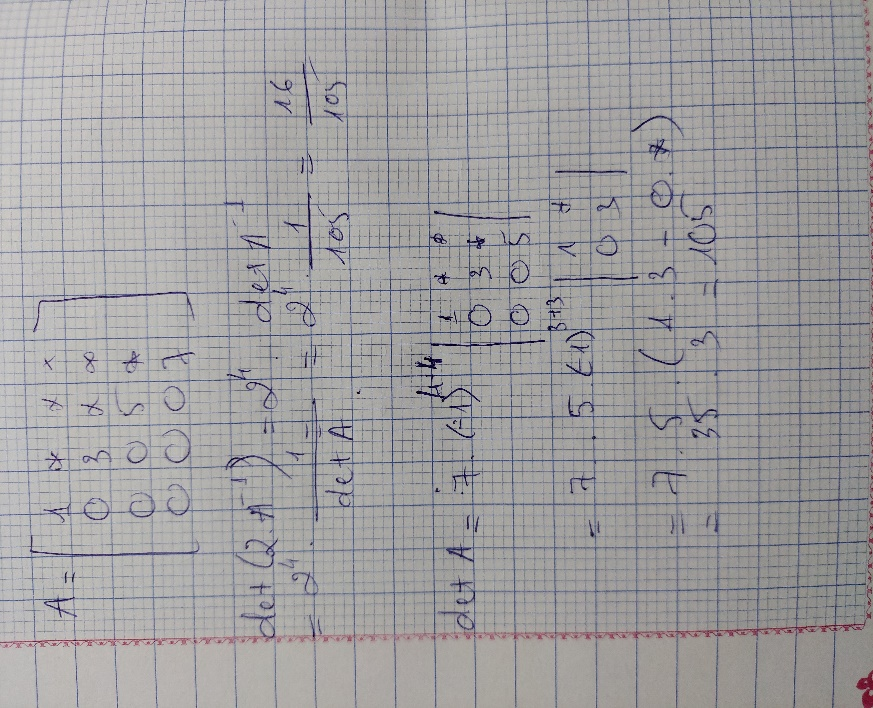 A = [ 1 * * *
0 3 * *
0 0 5 *
0 0 0 7 ]
det (2·A⁻¹) = 2⁴ · det A⁻¹
= 2⁴ · 1/det A = 2⁴ · 1/105 = 16/105
det A = 7·(-1)⁴⁺⁴ | 1 * *
0 3 *
0 0 5 |
= 7 · 5 · (-1)³⁺³ | 1 *
0 3 |
= 7 · 5 · (1·3 - 0·*)
= 35 · 3 = 105